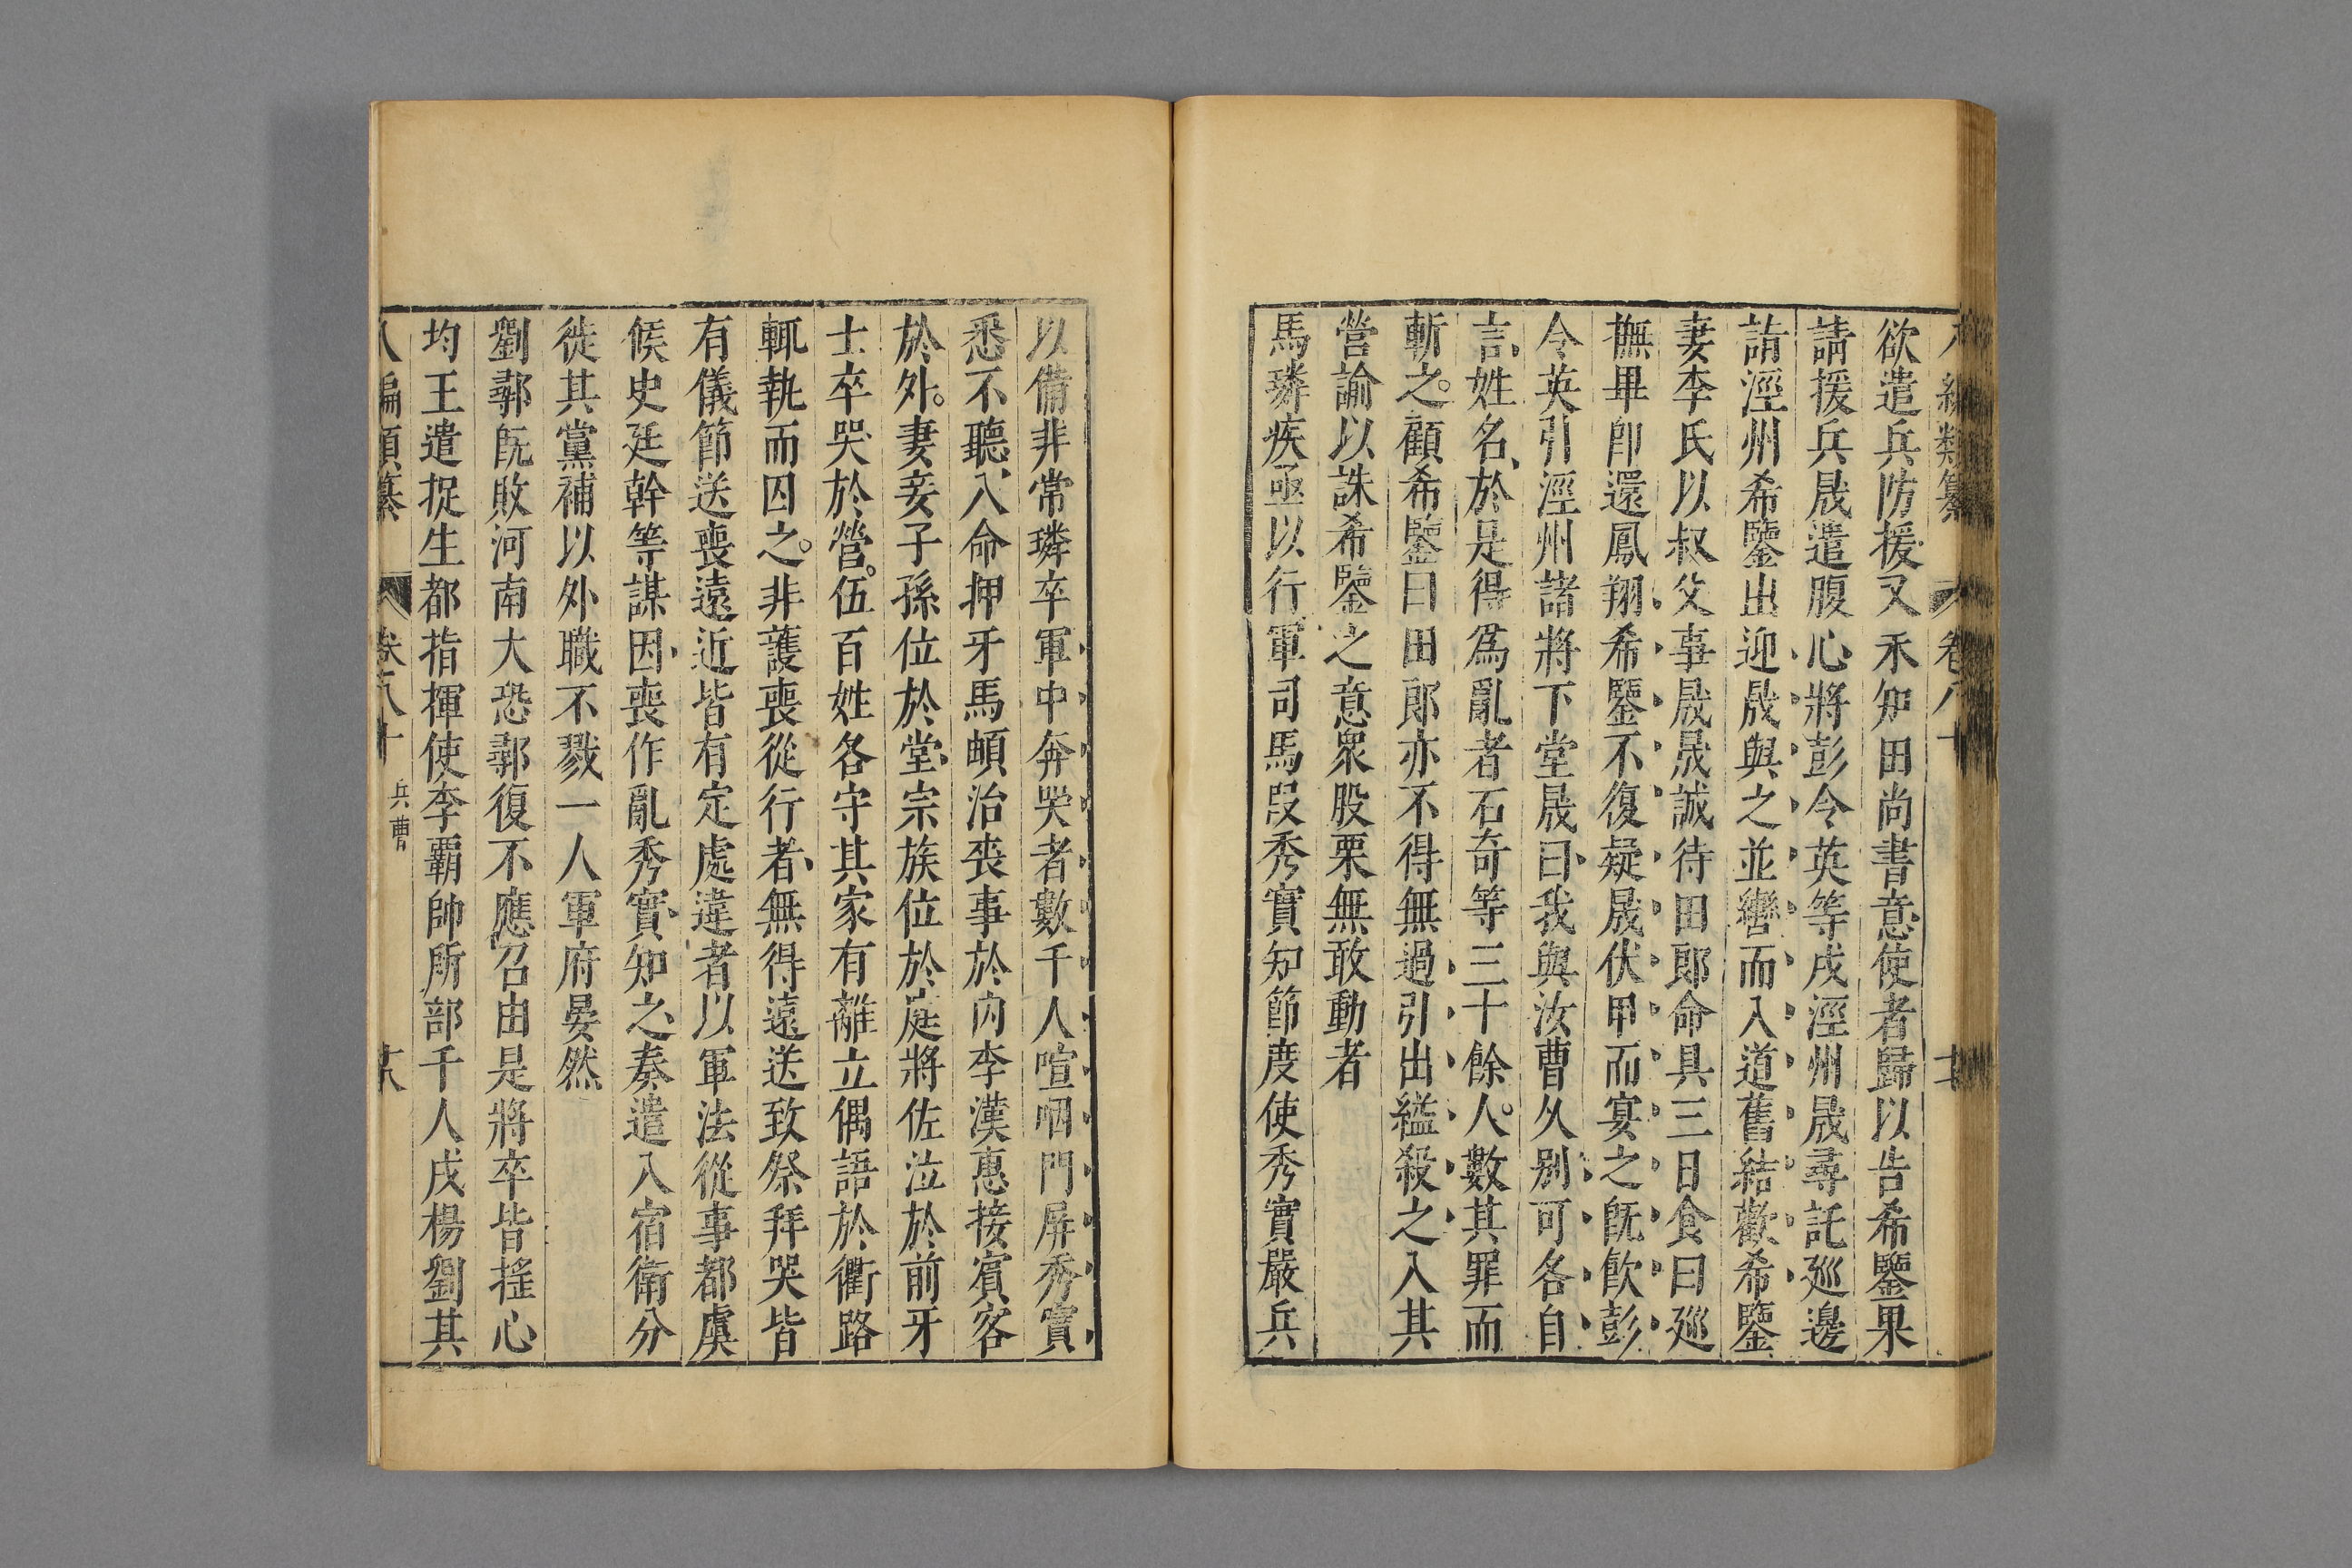 欲遣兵防援又未知田尚書意使者歸以告希鑒果
請援兵晟遣腹心將彭令英等戍涇州晟尋託廵邊
詣涇州希鑒出迎晟與之並轡而入道舊結歡希鑒
妻李氏以叔父事晟晟誠待田郎命具三日食曰廵
撫畢卽還鳳翔希鑒不復疑晟伏甲而宴之旣飮彭
令英引涇州諸將下堂晟曰我與汝曹久別可各自
言姓名於是得爲亂者石奇等三十餘人數其罪而
斬之顧希鑒曰田郎亦不得無過引出縊殺之入其
營諭以誅希鑒之意衆股栗無敢動者
馬璘疾亟以行軍司馬段秀實知節度使秀實嚴兵
以備非常璘卒軍中奔哭者數千人喧咽門屏秀實
悉不聽入命押牙馬頔治喪事於內李漢惠接賓客
於外妻妾子孫位於堂宗族位於庭將佐泣於前牙
士卒哭於營伍百姓各守其家有離立偶語於衢路
輒執而囚之非護喪從行者無得遠送致祭拜哭皆
有儀節送喪遠近皆有定處違者以軍法從事都虞
候史廷幹等謀因喪作亂秀實知之奏遣入宿衛分
徙其黨補以外職不戮一人軍府晏然
劉鄩旣敗河南大恐鄩復不應召由是將卒皆搖心
均王遣捉生都指揮使李霸帥所部千人戍楊劉其
八編類纂 卷之八十 兵曹 十八